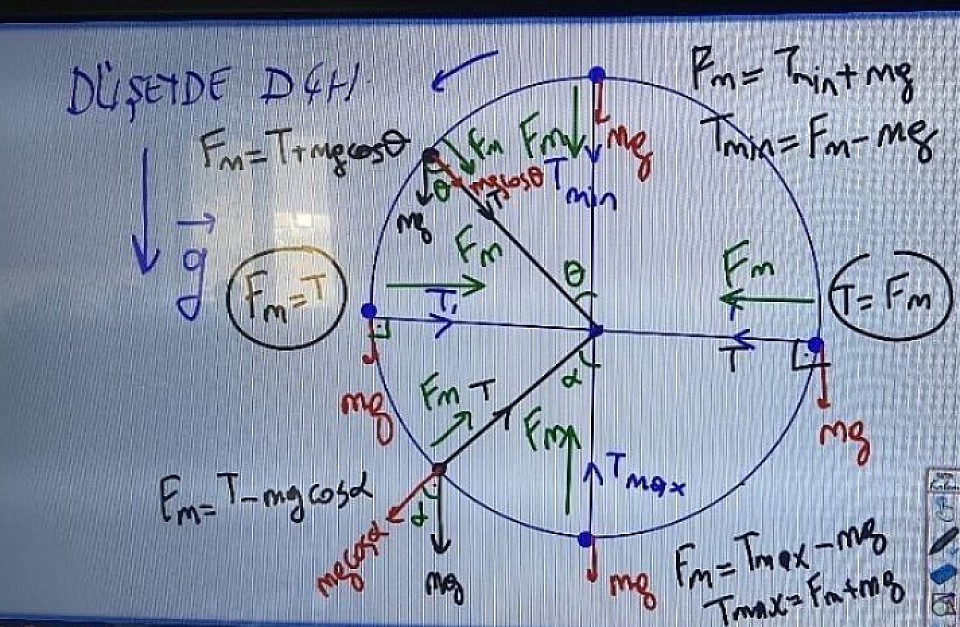 DÜŞEYDE DÇH
Fm = Tmin + mg
Tmin = Fm - mg
Fm = T + mgcosθ
Fm
Fm
mg
θ
mgcosθ
T
Tmin
mg
g
Fm = T
Fm
θ
Fm
T = Fm
T
T
mg
mg
Fm
T
α
Fm
Tmax
mg
Fm = T - mgcosα
α
mgcosα
mg
mg
Fm = Tmax - mg
Tmax = Fm + mg